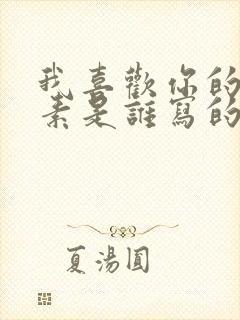 我喜歡你的
素是誰寫的
夏湯圓